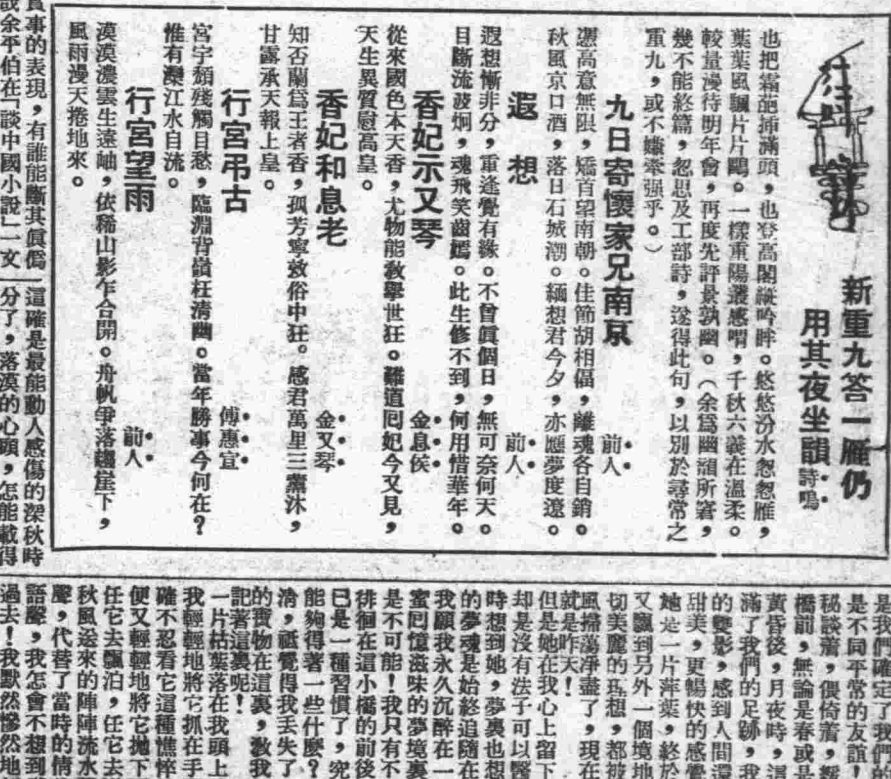 新重九答一雁仍
用其夜坐韻　詩鳴
也把霜葩揷滿頭，也登高閣縱吟眸。悠悠汾水怱怱雁，
葉葉風颿片片鷗。一樣重陽叢感喟，千秋六義在溫柔。
較量漫待明年會，再度先評景孰幽。（余爲幽韻所窘，
幾不能終篇，忽思及工部詩，遂得此句，以別於尋常之
重九，或不嫌牽强乎。）
九日寄懷家兄南京　前人
憑高意無限，矯首望南朝。佳節胡相偪，離魂各自銷。
秋風京口酒，落日石城潮。緬想君今夕，亦應夢度遼。
遐想　前人
遐想慚非分，重逢覺有緣。不曾眞個日，無可奈何天。
目斷流波炯，魂飛笑齒嫣。此生修不到，何用惜華年。
香妃示又琴　金息侯
從來國色本天香，尤物能敎擧世狂。難道囘妃今又見，
天生異質慰高皇。
香妃和息老　金又琴
知否蘭爲王者香，孤芳寧效俗中狂。感君萬里三薰沐，
甘露承天報上皇。
行宮弔古　傅惠宣
宮宇頹殘觸目愁，臨淵背嶺枉淸幽。當年勝事今何在？
惟有灤江水自流。
行宮望雨　前人
漠漠濃雲生遠岫，依稀山影乍合開。舟帆爭落翻崖下，
風雨漫天捲地來。
實事的表現，有誰能斷其眞僞
說余平伯在「談中國小說」一文
這確是最能動人感傷的深秋時
分了，落漠的心頭，怎能載得
是我們確定了我們
是不同平常的友誼！
秘談蕭，偎倚蕭，
橋前，無論是春或是
黃昏後，月夜時，這
滿了我們的足跡，我
的雙影，感到人間還
甜美，更暢快的感覺
她是一片萍葉，終於
又飄到另外一個境地
切美麗的理想，都被
風掃蕩净盡了，現在
就是昨天！
但是她在我心上留下
却是沒有法子可以醫
時想到她，夢裏也想
的夢魂是始終追隨在
我願我永久沉醉在一
蜜囘憶滋味的夢境裏
是不可能！我只有不
徘徊在這小橋的前後
已是一種習慣了，究
能夠得著一些什麼？
淸，祗覺得我丢失了
的寶物在這裏，敎我
記著這裏呢！
一片枯葉落在我頭上
我輕輕地將它抓在手
確不忍看它這種憔悴
便又輕輕地將它抛下
任它去飄泊，任它去
秋風送來的陣陣流水
聲，代替了當時的情
語聲，我怎會不想到
過去！我默然慘然地